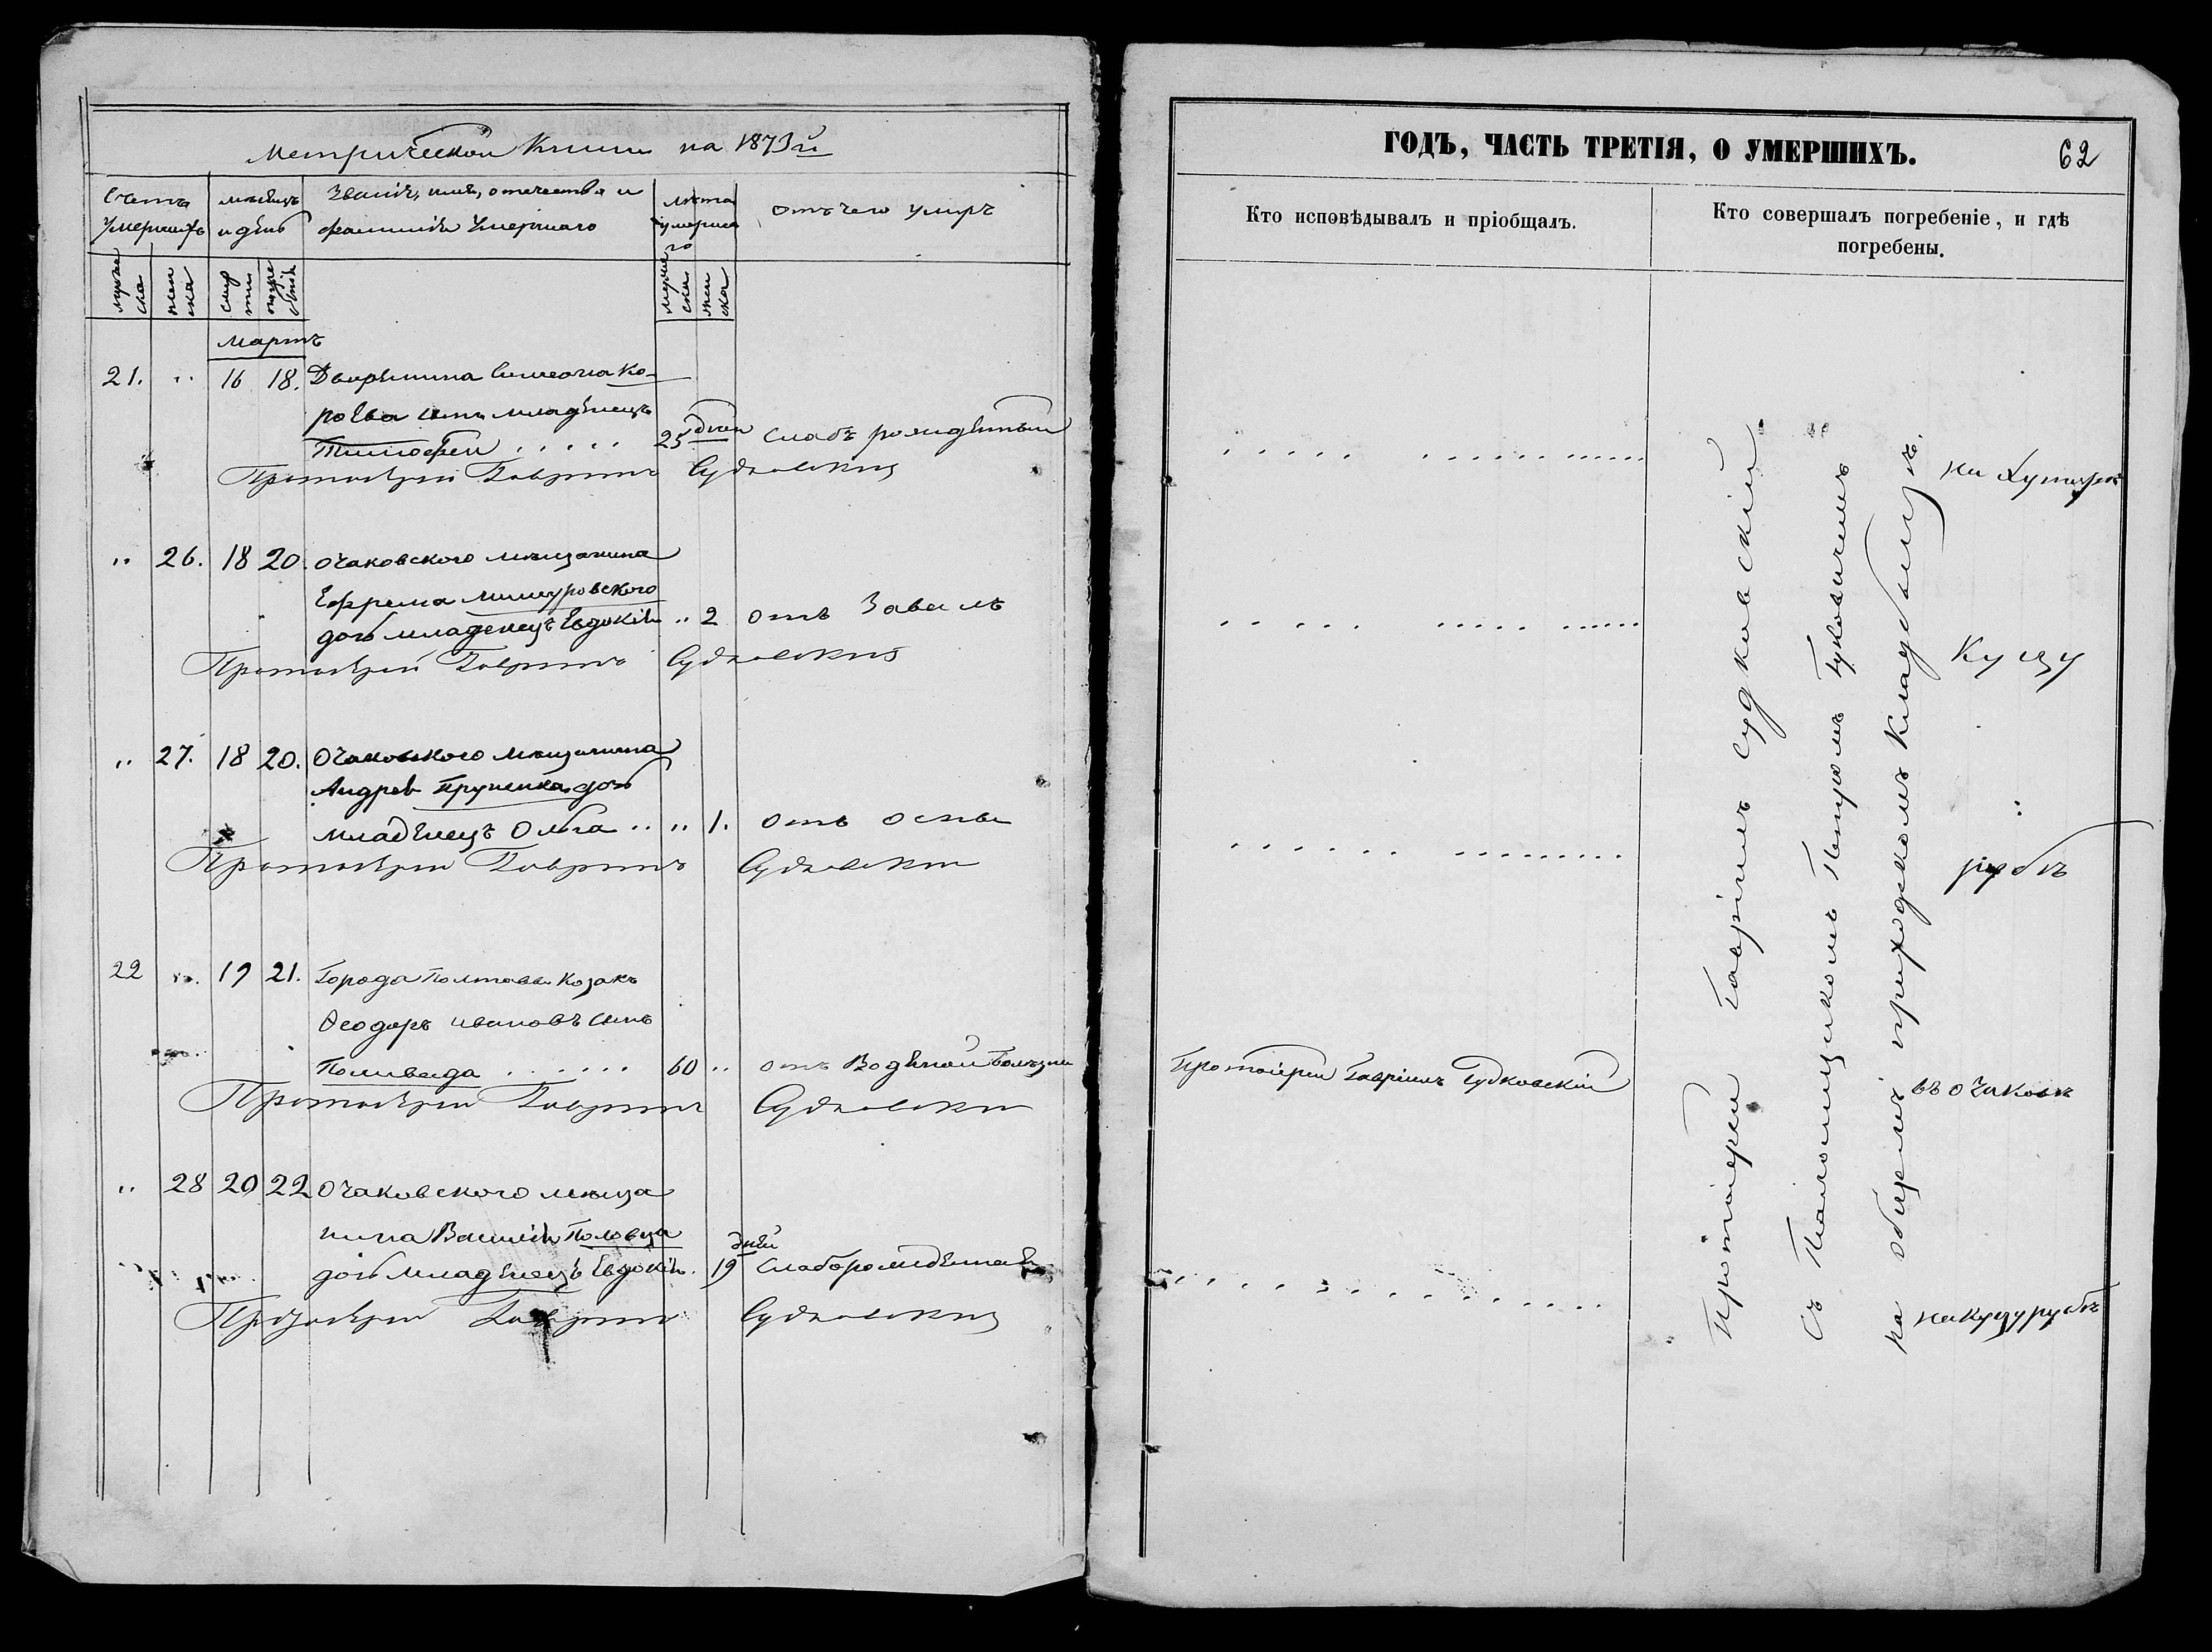 Метрической Книги на 1873й
Счетъ умершихъ
мѣсяцъ и день
Званіе, имя, отечество и фамилія Умершаго
лѣта умершаго
отъ чего умеръ
мужеска
женска
смерти
погребенія
мужеска
женска
Мартъ
21. „ 16 18. Дворянина Симеона Ко-
роева сынъ младенецъ
Тимофей . . . . . 25 дней слабъ рожденный
Протоіерей Гавріилъ Судковскій
„ 26. 18 20. Очаковского мѣщанина
Ефрема Мишуровского
дочь младенецъ Евдокія „ 2 отъ Завалъ
Протоіерей Гавріилъ Судковскій
„ 27. 18 20. Очаковского мѣщанина
Андрея дочь
младенецъ Ольга „ „ 1. отъ оспы
Протоіерей Гавріилъ Судковскій
22 „ 19 21. Города Полтавы Козакъ
Ѳеодоръ Ивановъ сынъ
Поливода . . . . . . 60 „ отъ Водяной болѣзни
Протоіерей Гавріилъ Судковскій
„ 28 20 22 Очаковского мѣща
нина Василія Половца
дочь младенецъ Евдокія. 19 дней Слаборожденная
Протоіерей Гавріилъ Судковскій
ГОДЪ, ЧАСТЬ ТРЕТІЯ, О УМЕРШИХЪ.
62
Кто исповѣдывалъ и пріобщалъ.
Кто совершалъ погребеніе, и гдѣ
погребены.
Протоіерей Гавріилъ Судковскій
Протоіерей Гавріилъ Судковскій
съ Псаломщикомъ Петромъ
на общемъ приходскомъ кладбищѣ
на Хуторѣ
Куцу
рубъ
въ Очаковѣ
на Куцурубъ